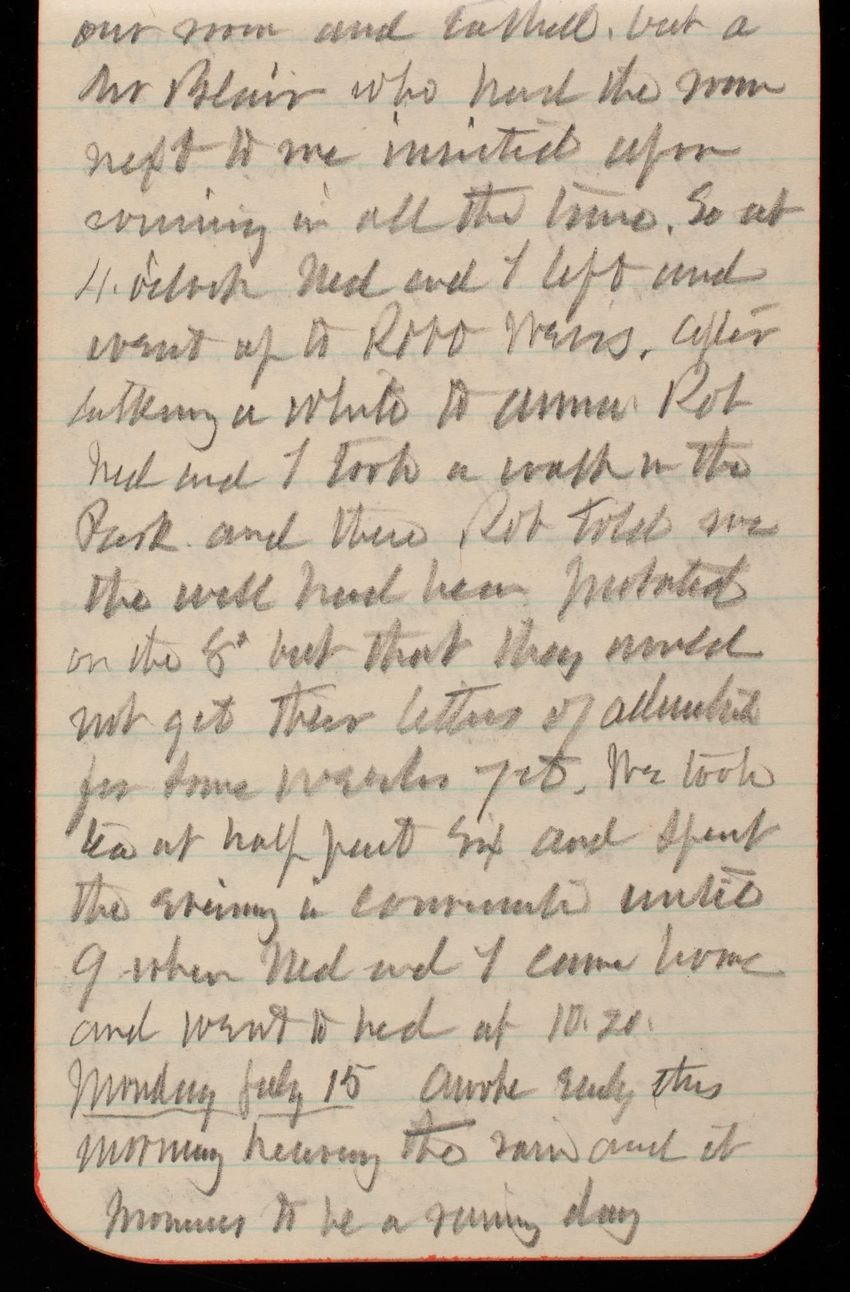 our room and talked. but a
Mr Blair who had the room
next to me insisted upon
coming in all the time. So at
4. o'clock Ned and I left and
went up to Robt Weirs. After
talking a while to Anna Rob
Ned and I took a walk in the
Park and there Rob told me
the will had been probated
on the 8th but that they would
not get their letters of
for some weeks yet. We took
tea at half past six and spent
the evening in until
9 when Ned and I came home
and went to bed at 10.20.
Monday July 15 Awoke early this
morning hearing the rain and it
promises to be a rainy day